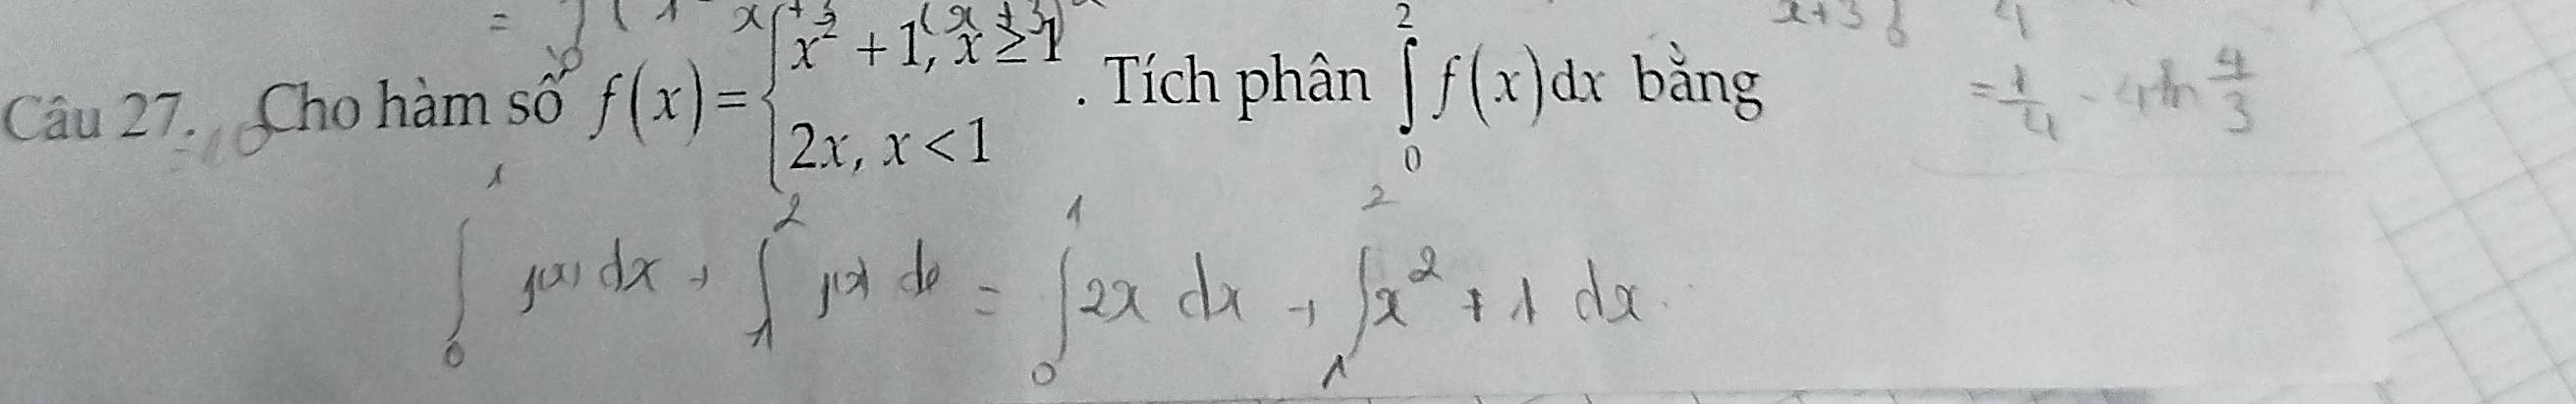 Câu 27. Cho hàm số f(x) = { x² + 1, x ≥ 1 ; 2x, x < 1 . Tích phân ∫₀² f(x)dx bằng
= 1/4 - 4 ln 4/3
∫₀¹ f(x) dx + ∫₁² f(x) dx = ∫₀¹ 2x dx + ∫₁² x² + 1 dx